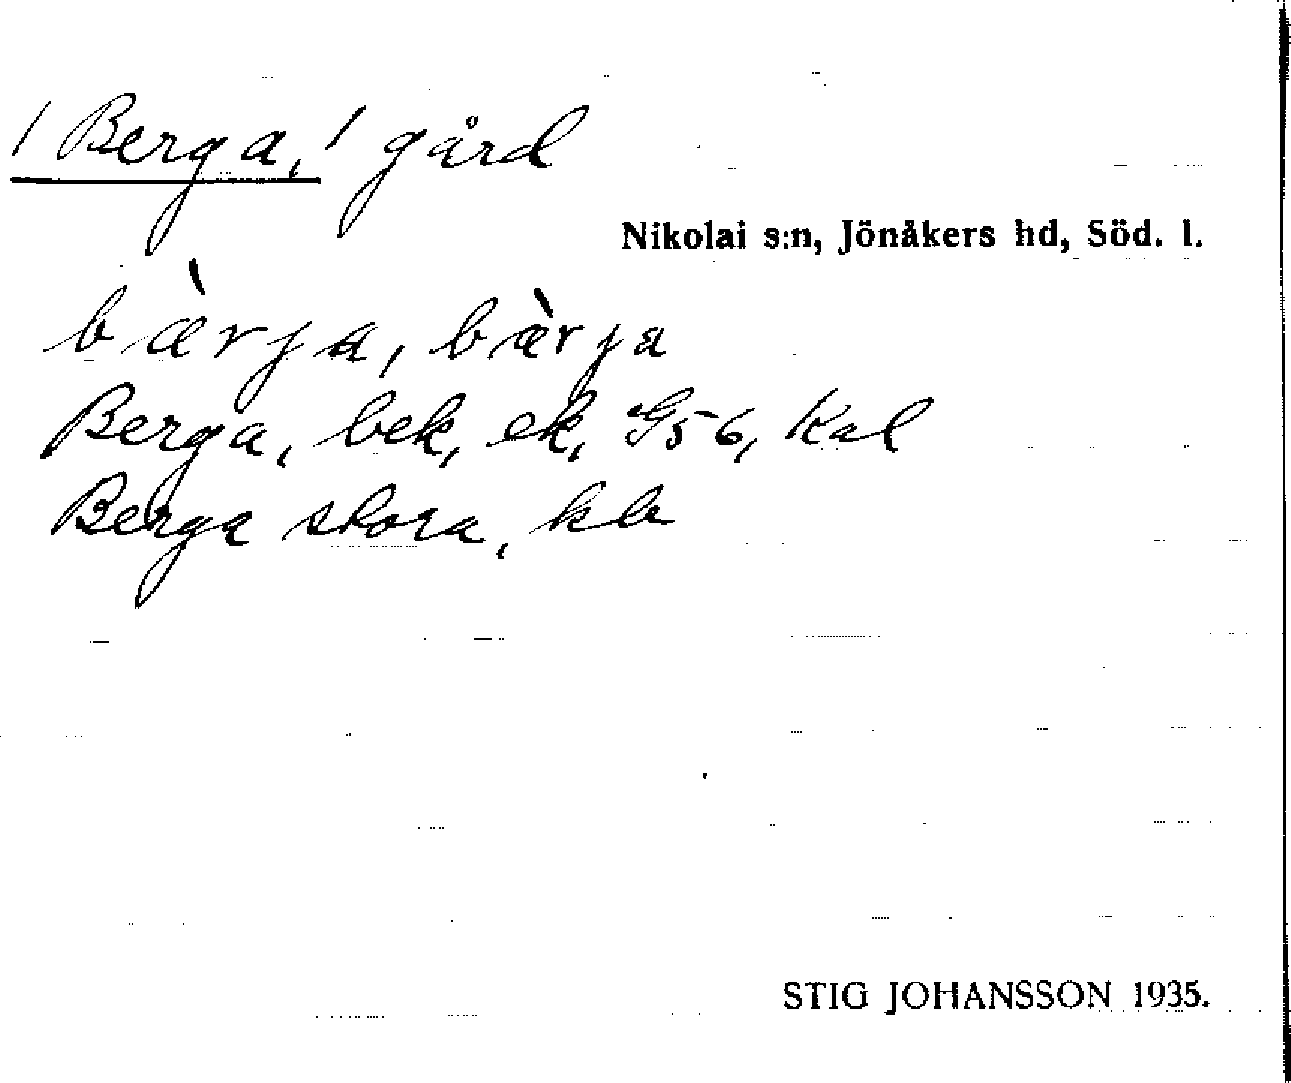 / Berga, / gård
Nikolai s:n, Jönåkers hd, Söd. l.
bæ̀rja, bæ̀rja
Berga, bek, ek, G56, Kal
Berga stora, kb
STIG JOHANSSON 1935.